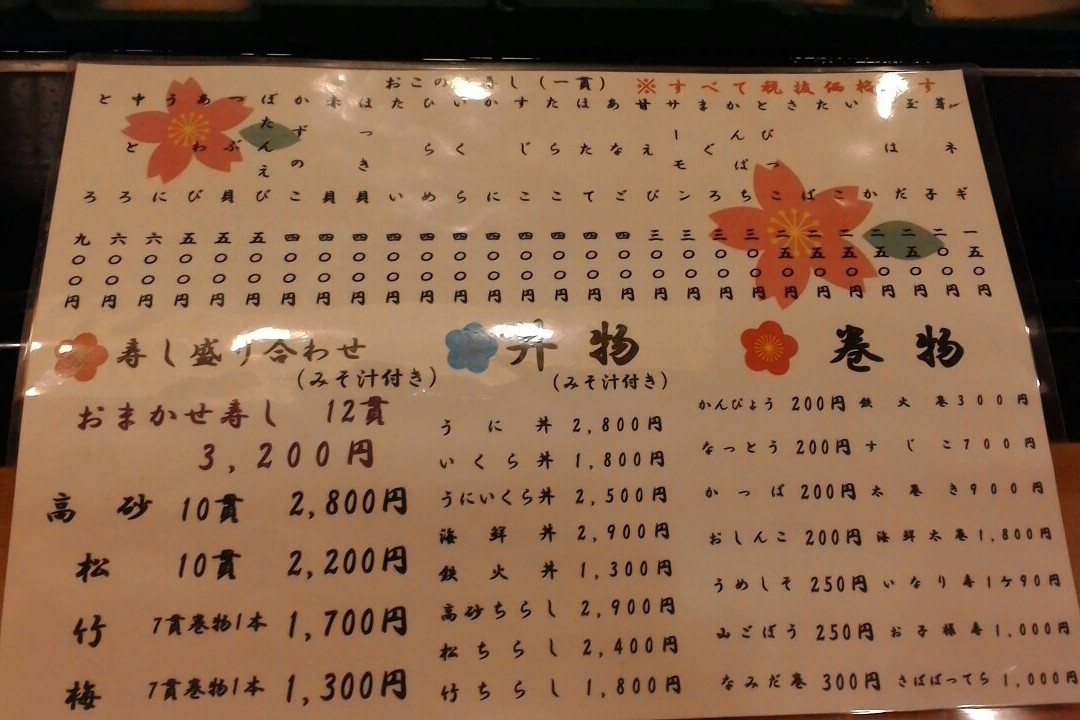 おこのみ寿し（一貫）
※すべて税抜価格です
芽ネギ 一五〇円
玉子 二〇〇円
こはだ 二五〇円
いか 二五〇円
たこ 二五〇円
さば 二五〇円
とびっこ 二五〇円
かんぱち 三〇〇円
まぐろ 三〇〇円
サーモン 三〇〇円
甘えび 三〇〇円
あなご 四〇〇円
ほたて 四〇〇円
たらこ 四〇〇円
すじこ 四〇〇円
かに 四〇〇円
いくら 四〇〇円
ひらめ 四〇〇円
たい 四〇〇円
ほっき貝 四〇〇円
赤貝 四〇〇円
かずのこ 四〇〇円
ぼたんえび 五〇〇円
つぶ貝 五〇〇円
あわび 五〇〇円
うに 六〇〇円
中とろ 六〇〇円
とろ 九〇〇円
寿し盛り合わせ
（みそ汁付き）
おまかせ寿し 12貫
3,200円
高砂 10貫 2,800円
松 10貫 2,200円
竹 7貫巻物1本 1,700円
梅 7貫巻物1本 1,300円
丼物
（みそ汁付き）
うに丼 2,800円
いくら丼 1,800円
うにいくら丼 2,500円
海鮮丼 2,900円
鉄火丼 1,300円
高砂ちらし 2,900円
松ちらし 2,400円
竹ちらし 1,800円
巻物
かんぴょう 200円 鉄火巻 300円
なっとう 200円 すじこ 700円
かっぱ 200円 太巻き 900円
おしんこ 200円 海鮮太巻 1,800円
うめしそ 250円 いなり寿1ケ90円
山ごぼう 250円 お子様寿 1,000円
なみだ巻 300円 さばばってら 1,000円